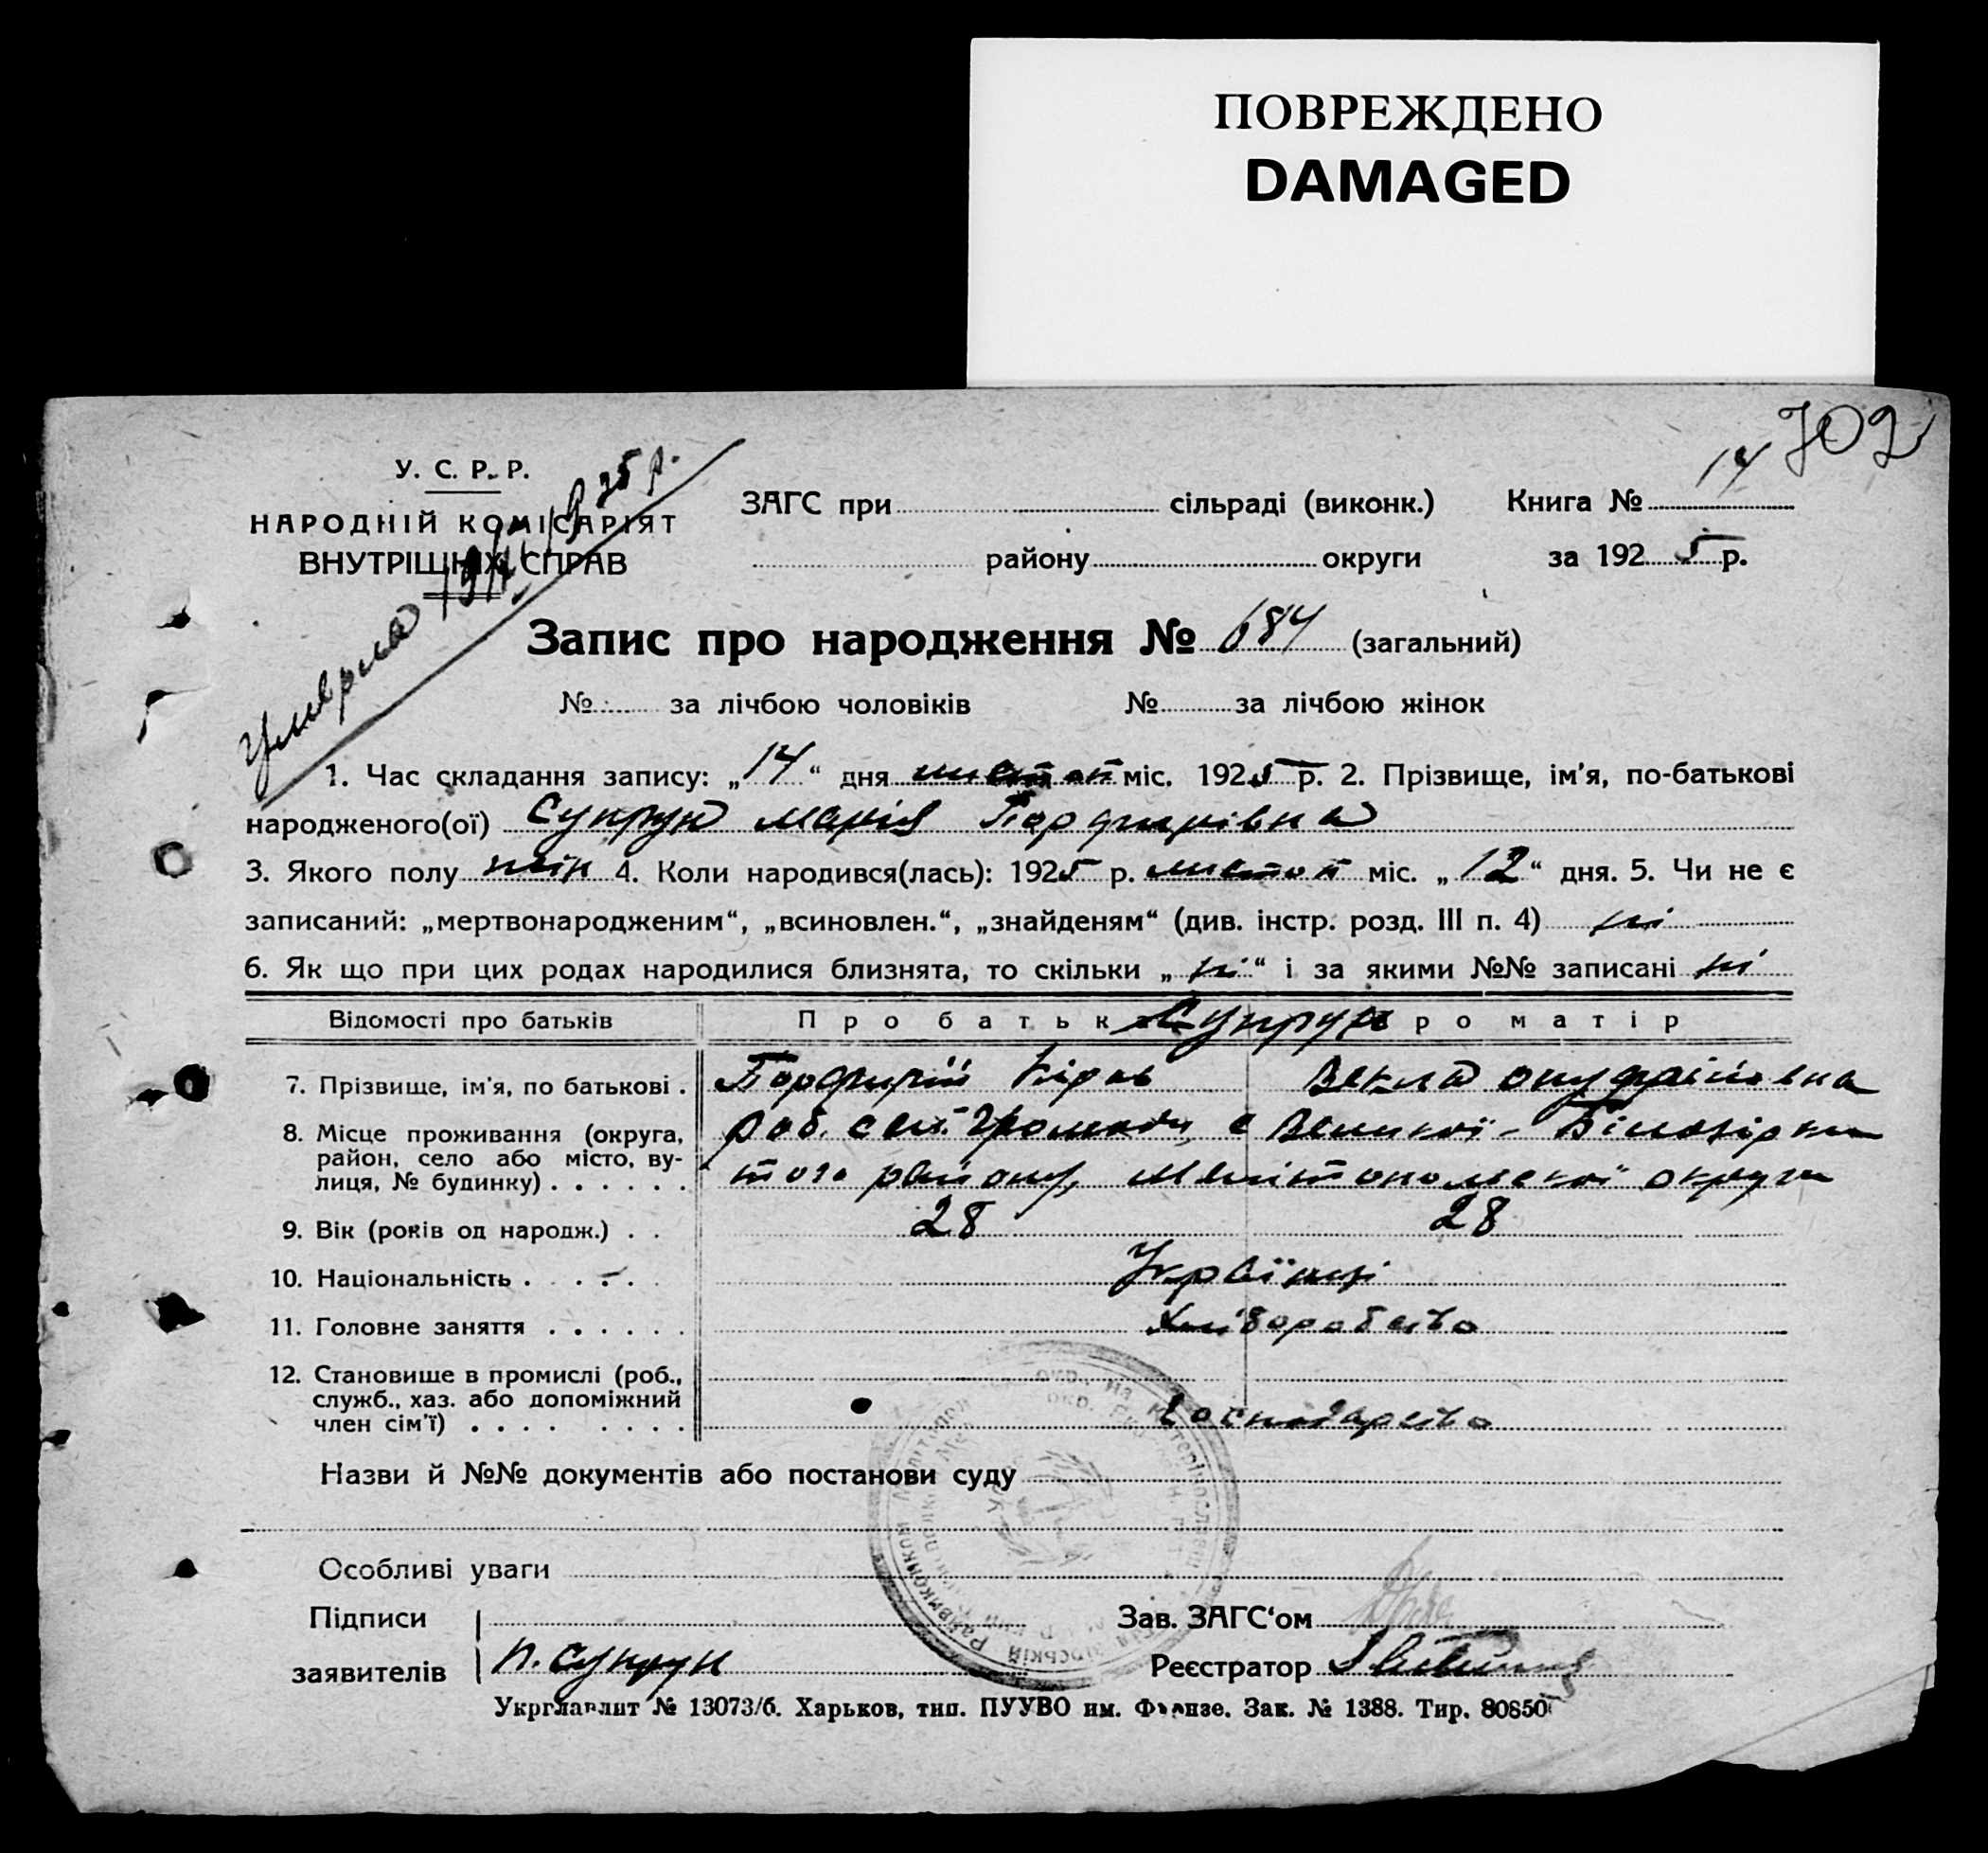 ПОВРЕЖДЕНО
DAMAGED
702
У. С. Р. Р.
НАРОДНІЙ КОМІСАРІЯТ
ВНУТРІШНІХ СПРАВ
Умерла 1925 р.
ЗАГС при сільраді (виконк.) Книга № 14
району округи за 1925 р.
Запис про народження № 684 (загальний)
№ за лічбою чоловіків № за лічбою жінок
1. Час складання запису: „14“ дня листоп міс. 1925 р. 2. Прізвище, ім'я, по-батькові
народженого(ої) Супрун Марія Порфирівна
3. Якого полу жін 4. Коли народився(лась): 1925 р. листоп міс. „12“ дня. 5. Чи не є
записаний: „мертвонародженим“, „всиновлен.“, „знайденям“ (див. інстр. розд. III п. 4) ні
6. Як що при цих родах народилися близнята, то скільки „ні“ і за якими №№ записані ні
Відомості про батьків Про батьк Супрун ро матір
7. Прізвище, ім'я, по батькові . Порфирій Кіров Векла онуфріївна
8. Місце проживання (округа, район, село або місто, вулиця, № будинку) . . . . . . сел. Громади, с Великої-Білозірки
того району, Мелітопольскої округи
9. Вік (років од народж.) . . 28 28
10. Національність . . . . . Українці
11. Головне заняття . . . . . . Хліборобство
12. Становище в промислі (роб.,
служб., хаз. або допоміжний
член сім'ї) . . . . . . . . Господарство
Назви й №№ документів або постанови суду
Особливі уваги
Підписи Зав. ЗАГС‘ом
заявителів П. Супрун Реєстратор
Укрглавлит № 13073/б. Харьков, тип. ПУУВО им. Фрунзе. Зак. № 1388. Тир. 80850